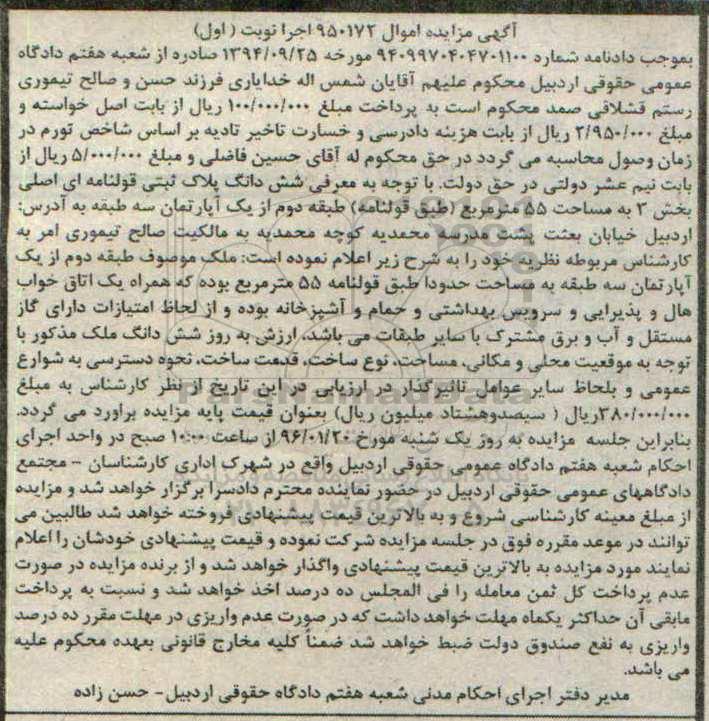 آگهی مزایده اموال ۹۵۰۱۷۲ اجرا نوبت (اول)
بموجب دادنامه شماره ۹۴۰۹۹۷۰۴۰۴۷۰۱۱۰۰ مورخه ۱۳۹۴/۰۹/۲۵ صادره از شعبه هفتم دادگاه
عمومی حقوقی اردبیل محکوم علیهم آقایان شمس اله خدایاری فرزند حسن و صالح تیموری
رستم قشلاقی صمد محکوم است به پرداخت مبلغ ۱۰۰/۰۰۰/۰۰۰ ریال از بابت اصل خواسته و
مبلغ ۲/۹۵۰/۰۰۰ ریال از بابت هزینه دادرسی و خسارت تاخیر تادیه بر اساس شاخص تورم در
زمان وصول محاسبه می گردد در حق محکوم له آقای حسین فاضلی و مبلغ ۵/۰۰۰/۰۰۰ ریال از
بابت نیم عشر دولتی در حق دولت. با توجه به معرفی شش دانگ پلاک ثبتی قولنامه ای اصلی
بخش ۳ به مساحت ۵۵ مترمربع (طبق قولنامه) طبقه دوم از یک آپارتمان سه طبقه به آدرس:
اردبیل خیابان بعثت پشت مدرسه محمدیه کوچه محمدیه به مالکیت صالح تیموری امر به
کارشناس مربوطه نظریه خود را به شرح زیر اعلام نموده است: ملک موصوف طبقه دوم از یک
آپارتمان سه طبقه به مساحت حدودا طبق قولنامه ۵۵ مترمربع بوده که همراه یک اتاق خواب
هال و پذیرایی و سرویس بهداشتی و حمام و آشپزخانه بوده و از لحاظ امتیازات دارای گاز
مستقل و آب و برق مشترک با سایر طبقات می باشد، ارزش به روز شش دانگ ملک مذکور با
توجه به موقعیت محلی و مکانی، مساحت، نوع ساخت، قدمت ساخت، نحوه دسترسی به شوارع
عمومی و بلحاظ سایر عوامل تاثیرگذار در ارزیابی در این تاریخ از نظر کارشناس به مبلغ
۳۸۰/۰۰۰/۰۰۰ریال ( سیصدوهشتاد میلیون ریال) بعنوان قیمت پایه مزایده براورد می گردد.
بنابراین جلسه مزایده به روز یک شنبه مورخ ۹۶/۰۱/۲۰ از ساعت ۱۰:۰۰ صبح در واحد اجرای
احکام شعبه هفتم دادگاه عمومی حقوقی اردبیل واقع در شهرک اداری کارشناسان - مجتمع
دادگاههای عمومی حقوقی اردبیل در حضور نماینده محترم دادسرا برگزار خواهد شد و مزایده
از مبلغ معینه کارشناسی شروع و به بالاترین قیمت پیشنهادی فروخته خواهد شد طالبین می
توانند در موعد مقرره فوق در جلسه مزایده شرکت نموده و قیمت پیشنهادی خودشان را اعلام
نمایند مورد مزایده به بالاترین قیمت پیشنهادی واگذار خواهد شد و از برنده مزایده در صورت
عدم پرداخت کل ثمن معامله را فی المجلس ده درصد اخذ خواهد شد و نسبت به پرداخت
مابقی آن حداکثر یکماه مهلت خواهد داشت که در صورت عدم واریزی در مهلت مقرر ده درصد
واریزی به نفع صندوق دولت ضبط خواهد شد ضمناً کلیه مخارج قانونی بعهده محکوم علیه
می باشد.
مدیر دفتر اجرای احکام مدنی شعبه هفتم دادگاه حقوقی اردبیل- حسن زاده
ParsNamadData